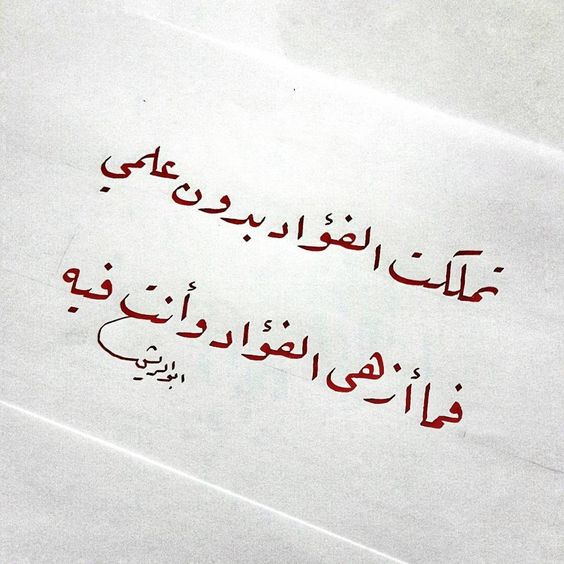 تملكت الفؤاد بدون علمي
فما أزهى الفؤاد وأنت فيه
ابو الريش